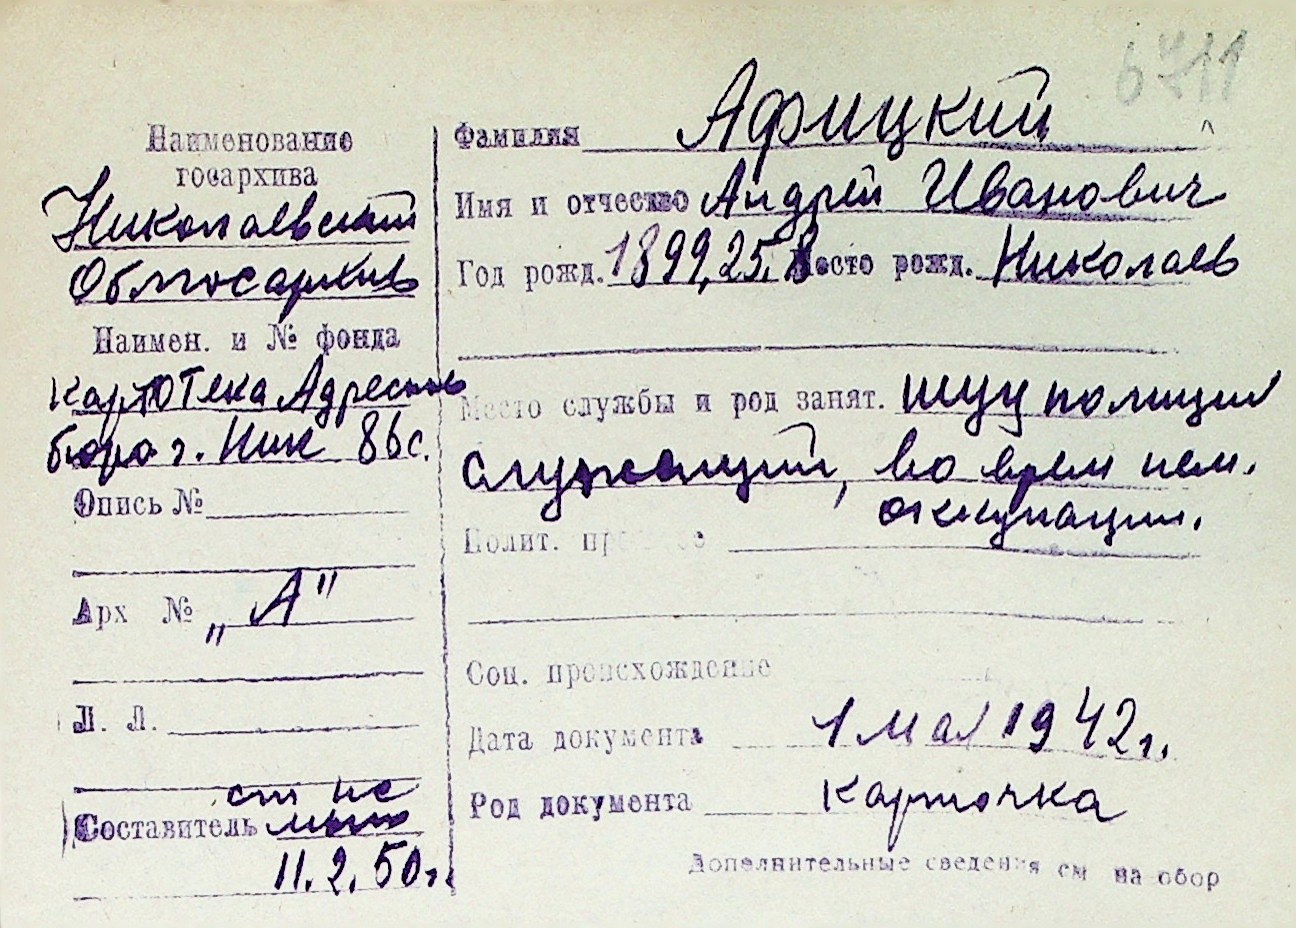 6711
Наименование
госархива
Николаевский
Облгосархив
Наимен. и № фонда
картотека Адресного
бюро г. Ник 86с.
Опись №
Арх № „А"
Л. Л.
Составитель
11.2.50г.
Фамилия Африцкий
Имя и отчество Андрей Иванович
Год рожд. 1899, 25. 8 Место рожд. Николаев
Место службы и род занят. шуц полиции
служащий, во врем нем.
оккупации.
Полит. пр
Соц. происхождение
Дата документа 1 мая 1942 г.
Род документа карточка
Дополнительные сведения см на обор